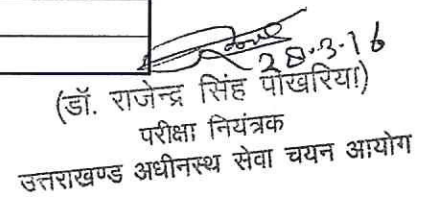 28.3.16
(डॉ. राजेन्द्र सिंह पोखरिया)
परीक्षा नियंत्रक
उत्तराखण्ड अधीनस्थ सेवा चयन आयोग